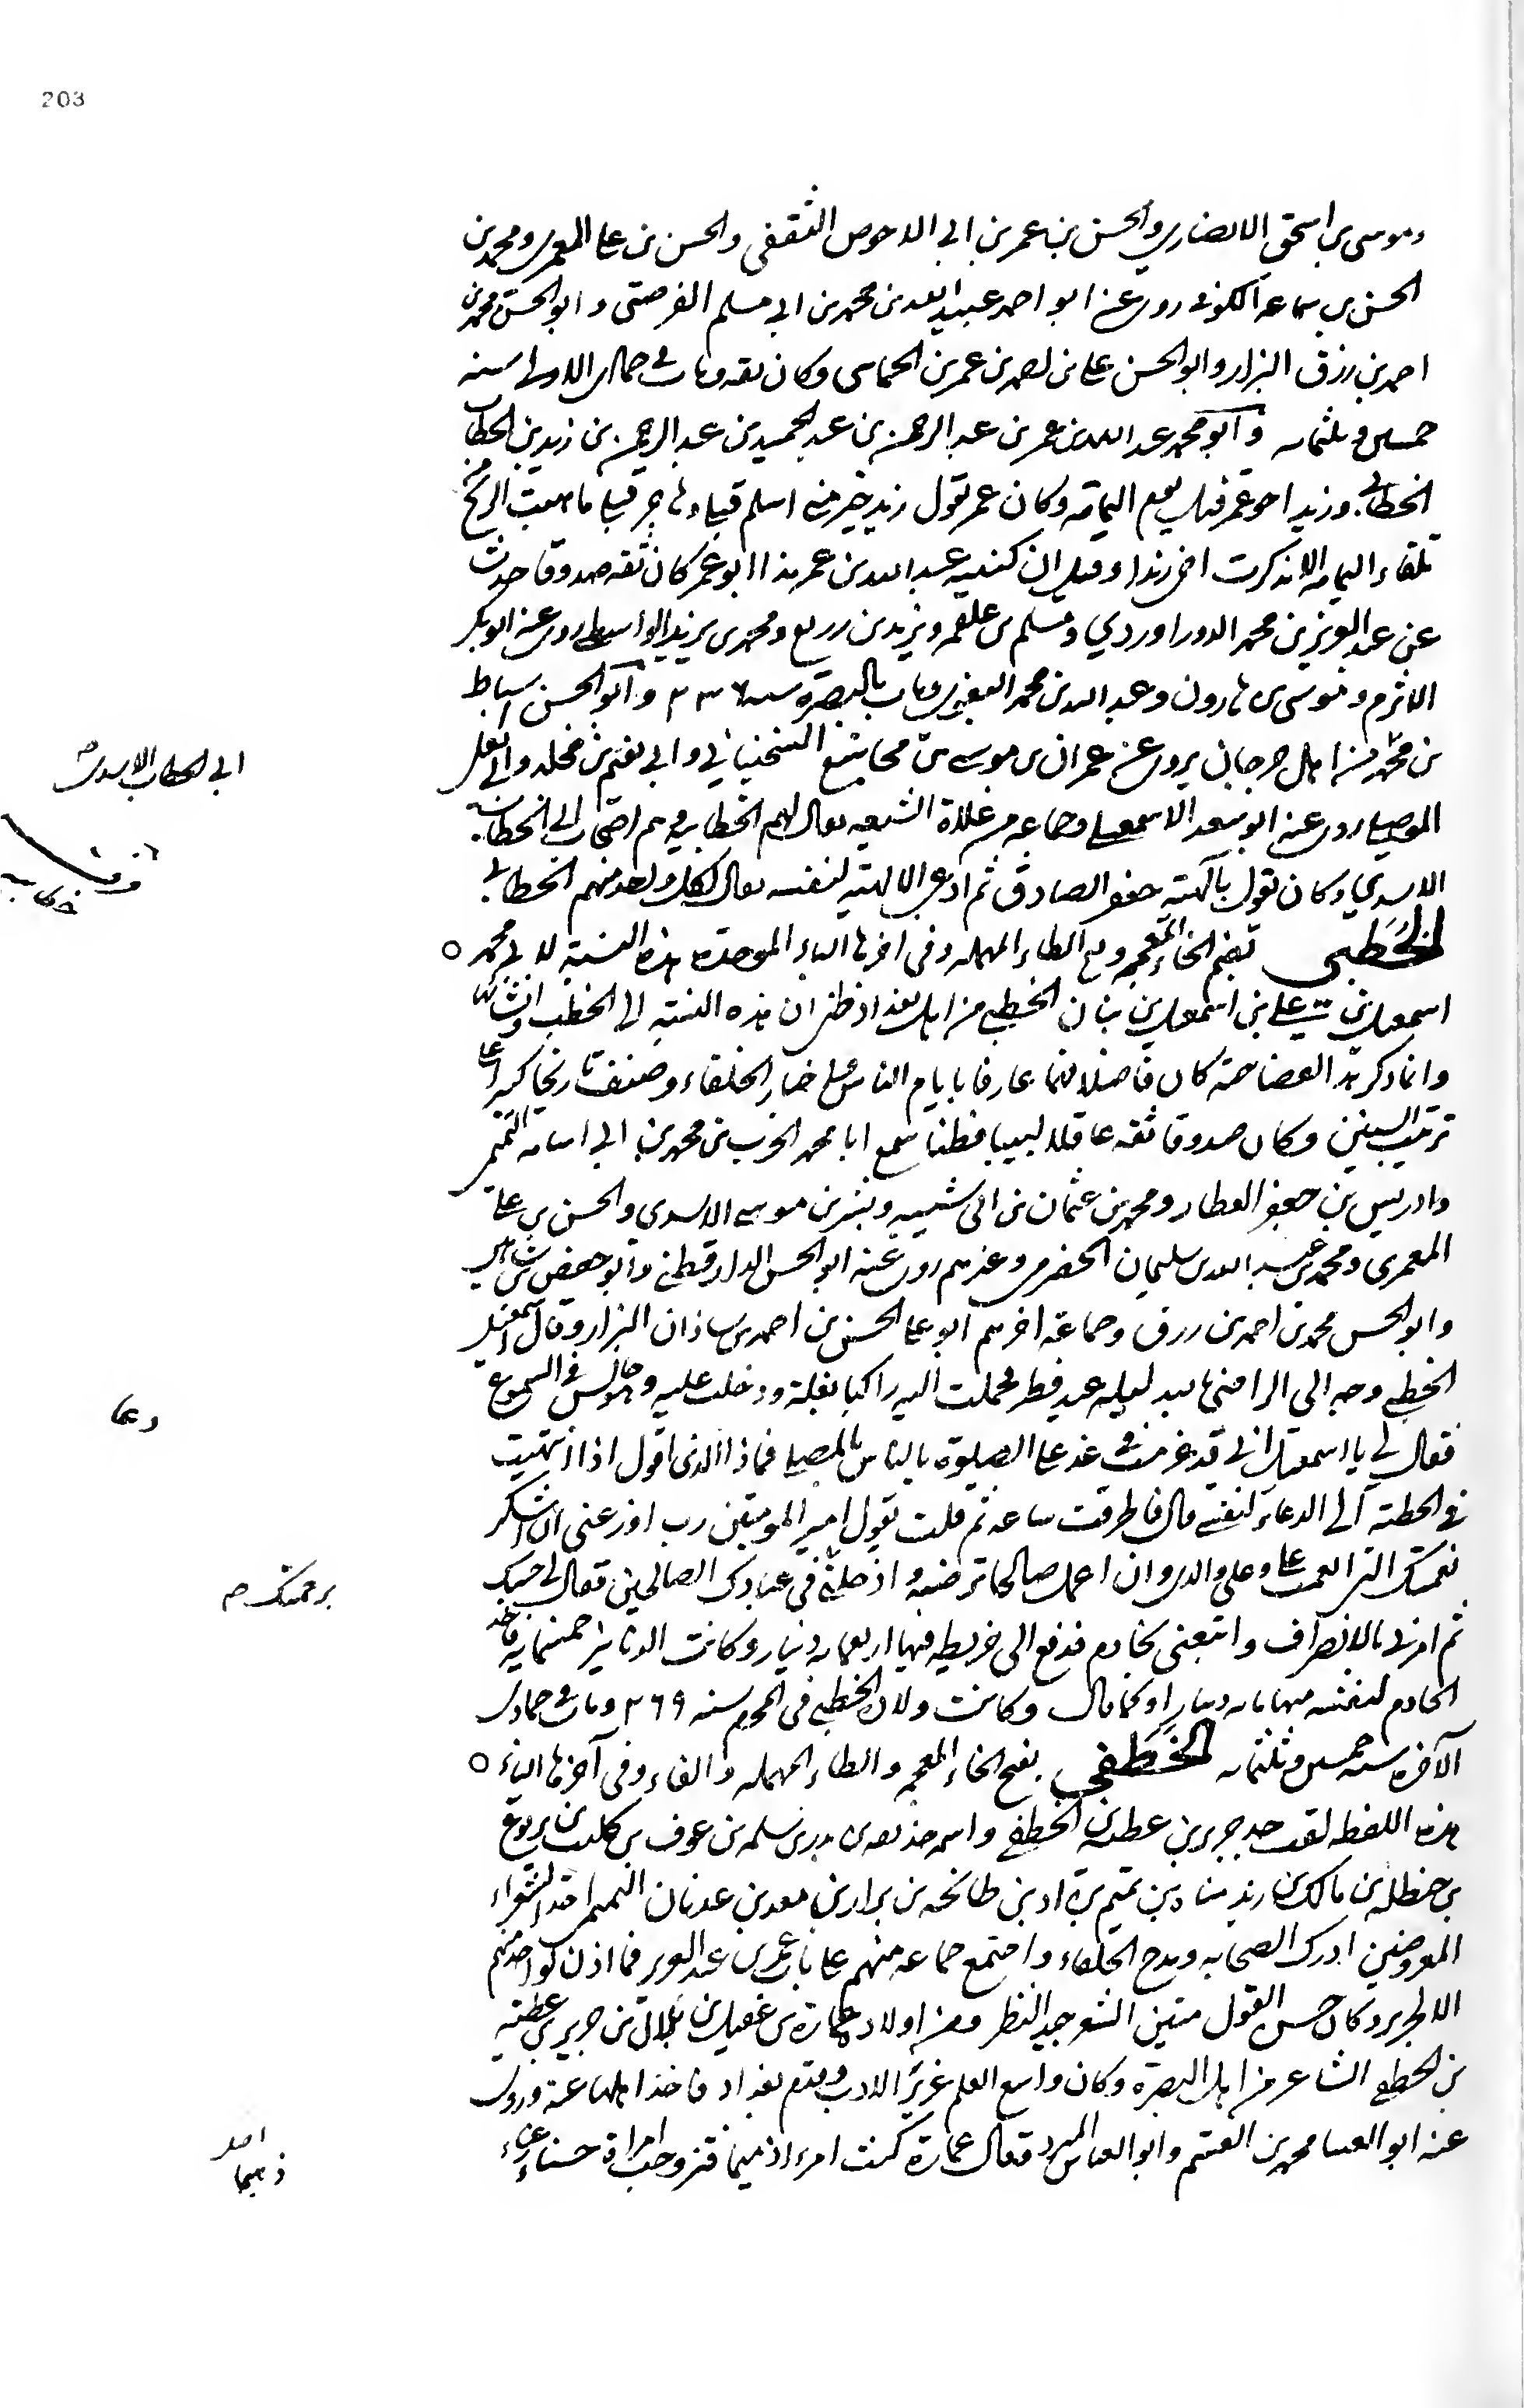 203
وموسى بن اسحق الانصاري والحسن بن عمر بن ابي الاحوص الثقفي والحسن بن علي المعمري ومحمد بن
الحسن بن سماعة الكوفي روى عنه ابو احمد عبيد الله بن محمد بن ابي مسلم الفرضي وابو الحسن محمد بن
احمد بن رزق البزار وابو الحسن علي بن احمد بن عمر بن الحمامي وكان ثقة ومات في جمادى الاولى سنة
خمسين وثلثمائة وابو محمد عبد الله بن عمر بن عبد الرحمن بن عبد الحميد بن عبد الرحمن بن زيد بن الخطاب
الخطابي وزيد اخو عمر قتل يوم اليمامة وكان عمر يقول زيد خير مني اسلم قبلي وهاجر قبلي ما هبت الريح من
تلقاء اليمامة الا ذكرت اخي زيدا وقيل ان كنية عبد الله بن عمر هذا ابو عمر كان ثقة صدوقا حدث
عن عبد العزيز بن محمد الدراوردي ومسلم بن علقمه ويزيد بن زريع ومحمد بن يزيد الواسطي روى عنه ابو بكر
الاثرم وموسى بن هارون وعبد الله بن محمد البغوي ومات بالبصرة سنه ٢٣٦ وابو الحسن اسباط
بن محمد من اهل جرجان يروي عن عمران بن موسى بن مجاشع السختياني وابي نعيم بن مخلد وابي يعلى
الموصلي روى عنه ابو سعد الاسمعيلي وجماعة من غلاة الشيعه يقال لهم الخطابية وهم اصحاب ابي الخطاب
ابي الخطاب الاسدي
الاسدي وكان يقول بآلهية جعفر الصادق ثم ادعى الالهية لنفسه يقال لكل واحد منهم الخطابي
الخُطَبي بضم الخاء المعجمه وفتح الطاء المهمله وفي اخرها الباء الموحدة هذه النسبة لابي محمد
اسمعيل بن علي بن اسمعيل بن بنان الخطبي من اهل بغداد ظن ان هذه النسبة الى الخطب وانشائها
وانما ذكر هذا لفصاحته كان فاضلا فهما عارفا بايام الناس واخبار الخلفاء وصنف تاريخا كبيرا على
ترتيب السنين وكان صدوقا ثقه عاقلا لبيبا فطنا سمع ابا محمد الحرث بن محمد بن ابي اسامة التميمي
وادريس بن جعفر العطار ومحمد بن عثمان بن ابي شيبه وبشر بن موسى الاسدي والحسن بن علي
المعمري ومحمد بن عبد الله بن سليمان الحضرمي وغيرهم روى عنه ابو الحسن الدارقطني وابو حفص بن شاهين
وابو الحسن محمد بن احمد بن رزق وجماعة اخرهم ابو علي الحسن بن احمد بن شاذان البزار وقال اسمعيل
الخطبي وجه الي الراضي بالله ليلة عيد فطر فحملت اليه راكبا بغلة ودخلت عليه وهو جالس في الشموع
فقال لي يا اسمعيل اني قد عزمت في غد على الصلوة بالناس بالمصلى فماذا الذي اقول اذا انتهيت
في الخطبة الى الدعاء لنفسي قال فاطرقت ساعة ثم قلت تقول امير المومنين رب اوزعني ان اشكر
نعمتك التي انعمت علي وعلى والدي وان اعمل صالحا ترضيه وادخلني في عبادك الصالحين فقال لي حسبك
برحمتك صح
ثم امرني بالانصراف واتبعني بخادم فدفع الي خريطه فيها اربعمائه دينار وكانت الدنانير خمسمائة فاخذ
الخادم لنفسه منها مائه دينار او كما قال وكانت ولادة الخطبي في المحرم سنه ٢٦٩ ومات في جمادى
الآخرة سنه خمسين وثلثمائه الخَطَفي بفتح الخاء المعجمه والطاء المهمله والفاء وفي آخرها الياء
هذه اللفظه لقب جد جرير بن عطيه بن الخطفي واسمه حذيفه بن بدر بن سلمه بن عوف بن كليب بن يربوع
بن حنظله بن مالك بن زيد مناة بن تميم بن اد بن طابخه بن نزار بن معد بن عدنان التميمي احد الشعراء
المعروفين ادرك الصحابه ومدح الخلفاء واجتمع جماعه منهم على باب عمر بن عبد العزيز فما اذن لواحد منهم
الا لجرير وكان حسن القول متين الشعر جيد النظر ومن اولاده عمارة بن عقيل بن بلال بن جرير بن عطيه
بن الخطفي الشاعر من اهل البصرة وكان واسع العلم غزير الادب وقدم بغداد فاخذ اهلها عنه وروى
عنه ابو العينا محمد بن القسم وابو العباس المبرد فقال عمارة كنت امرءا ذميما فتزوجت امراة حسناء رعناء